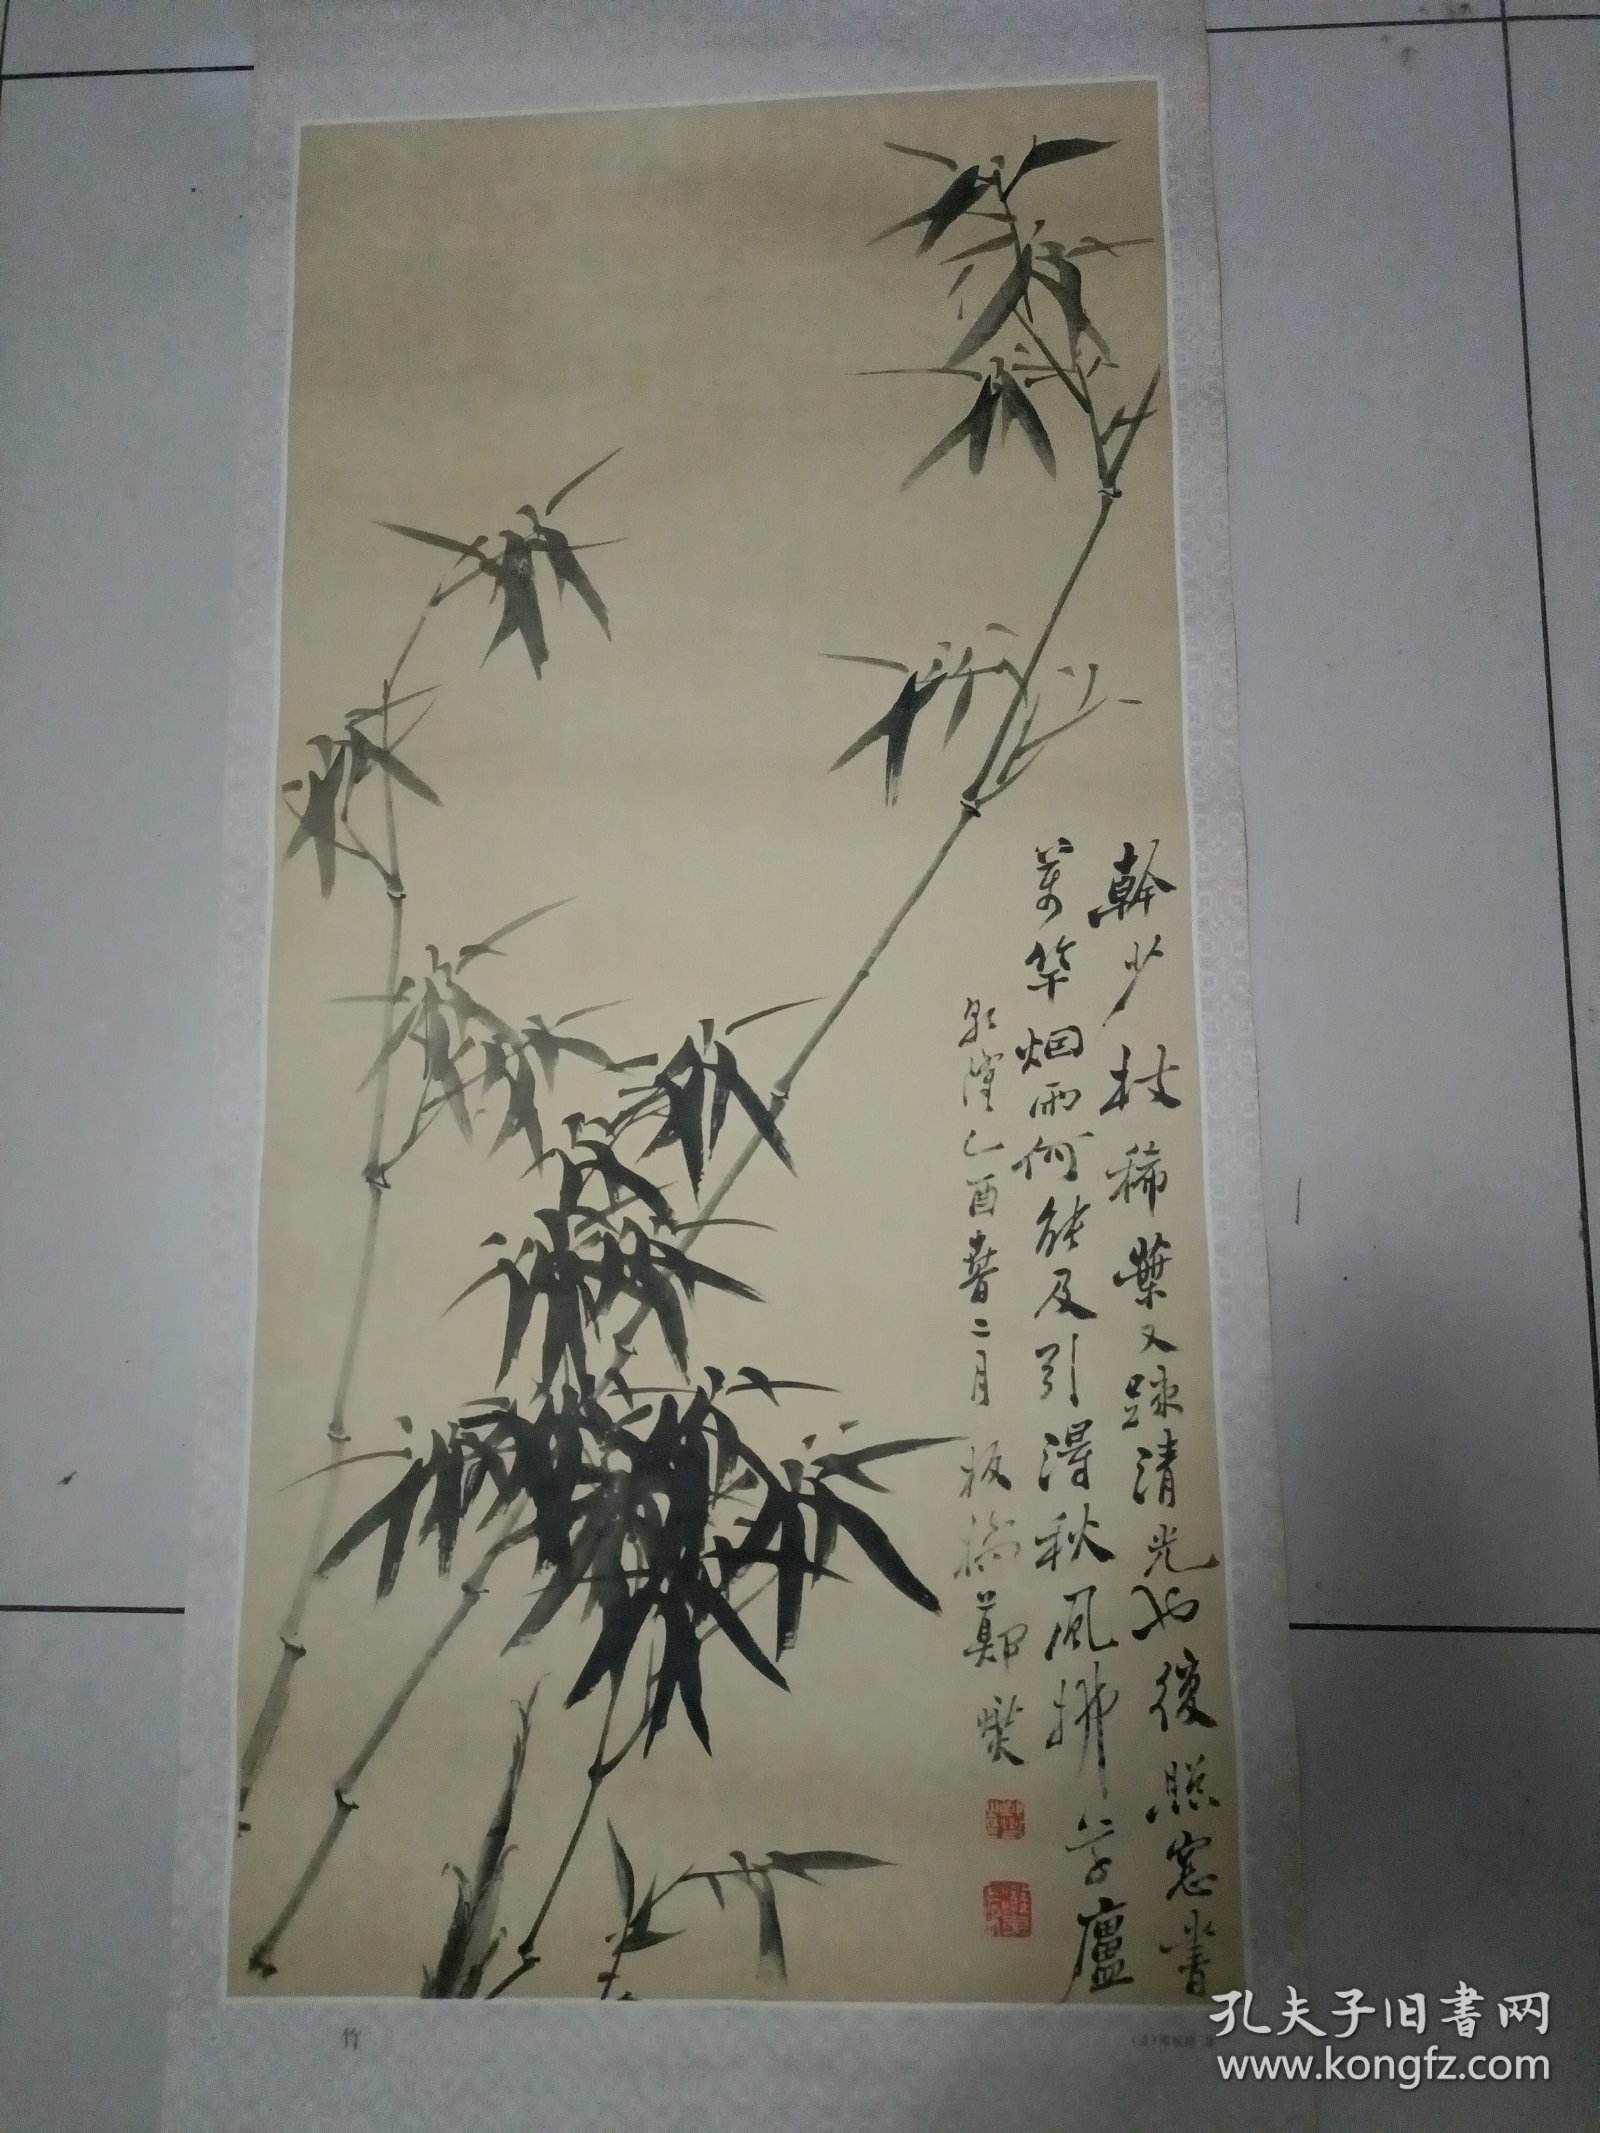 幹少枝稀葉又踈清光必復照窓書
萬竿烟雨何能及引得秋風拂草廬
乾隆乙酉春二月板橋鄭燮
竹
孔夫子旧書网
www.kongfz.com